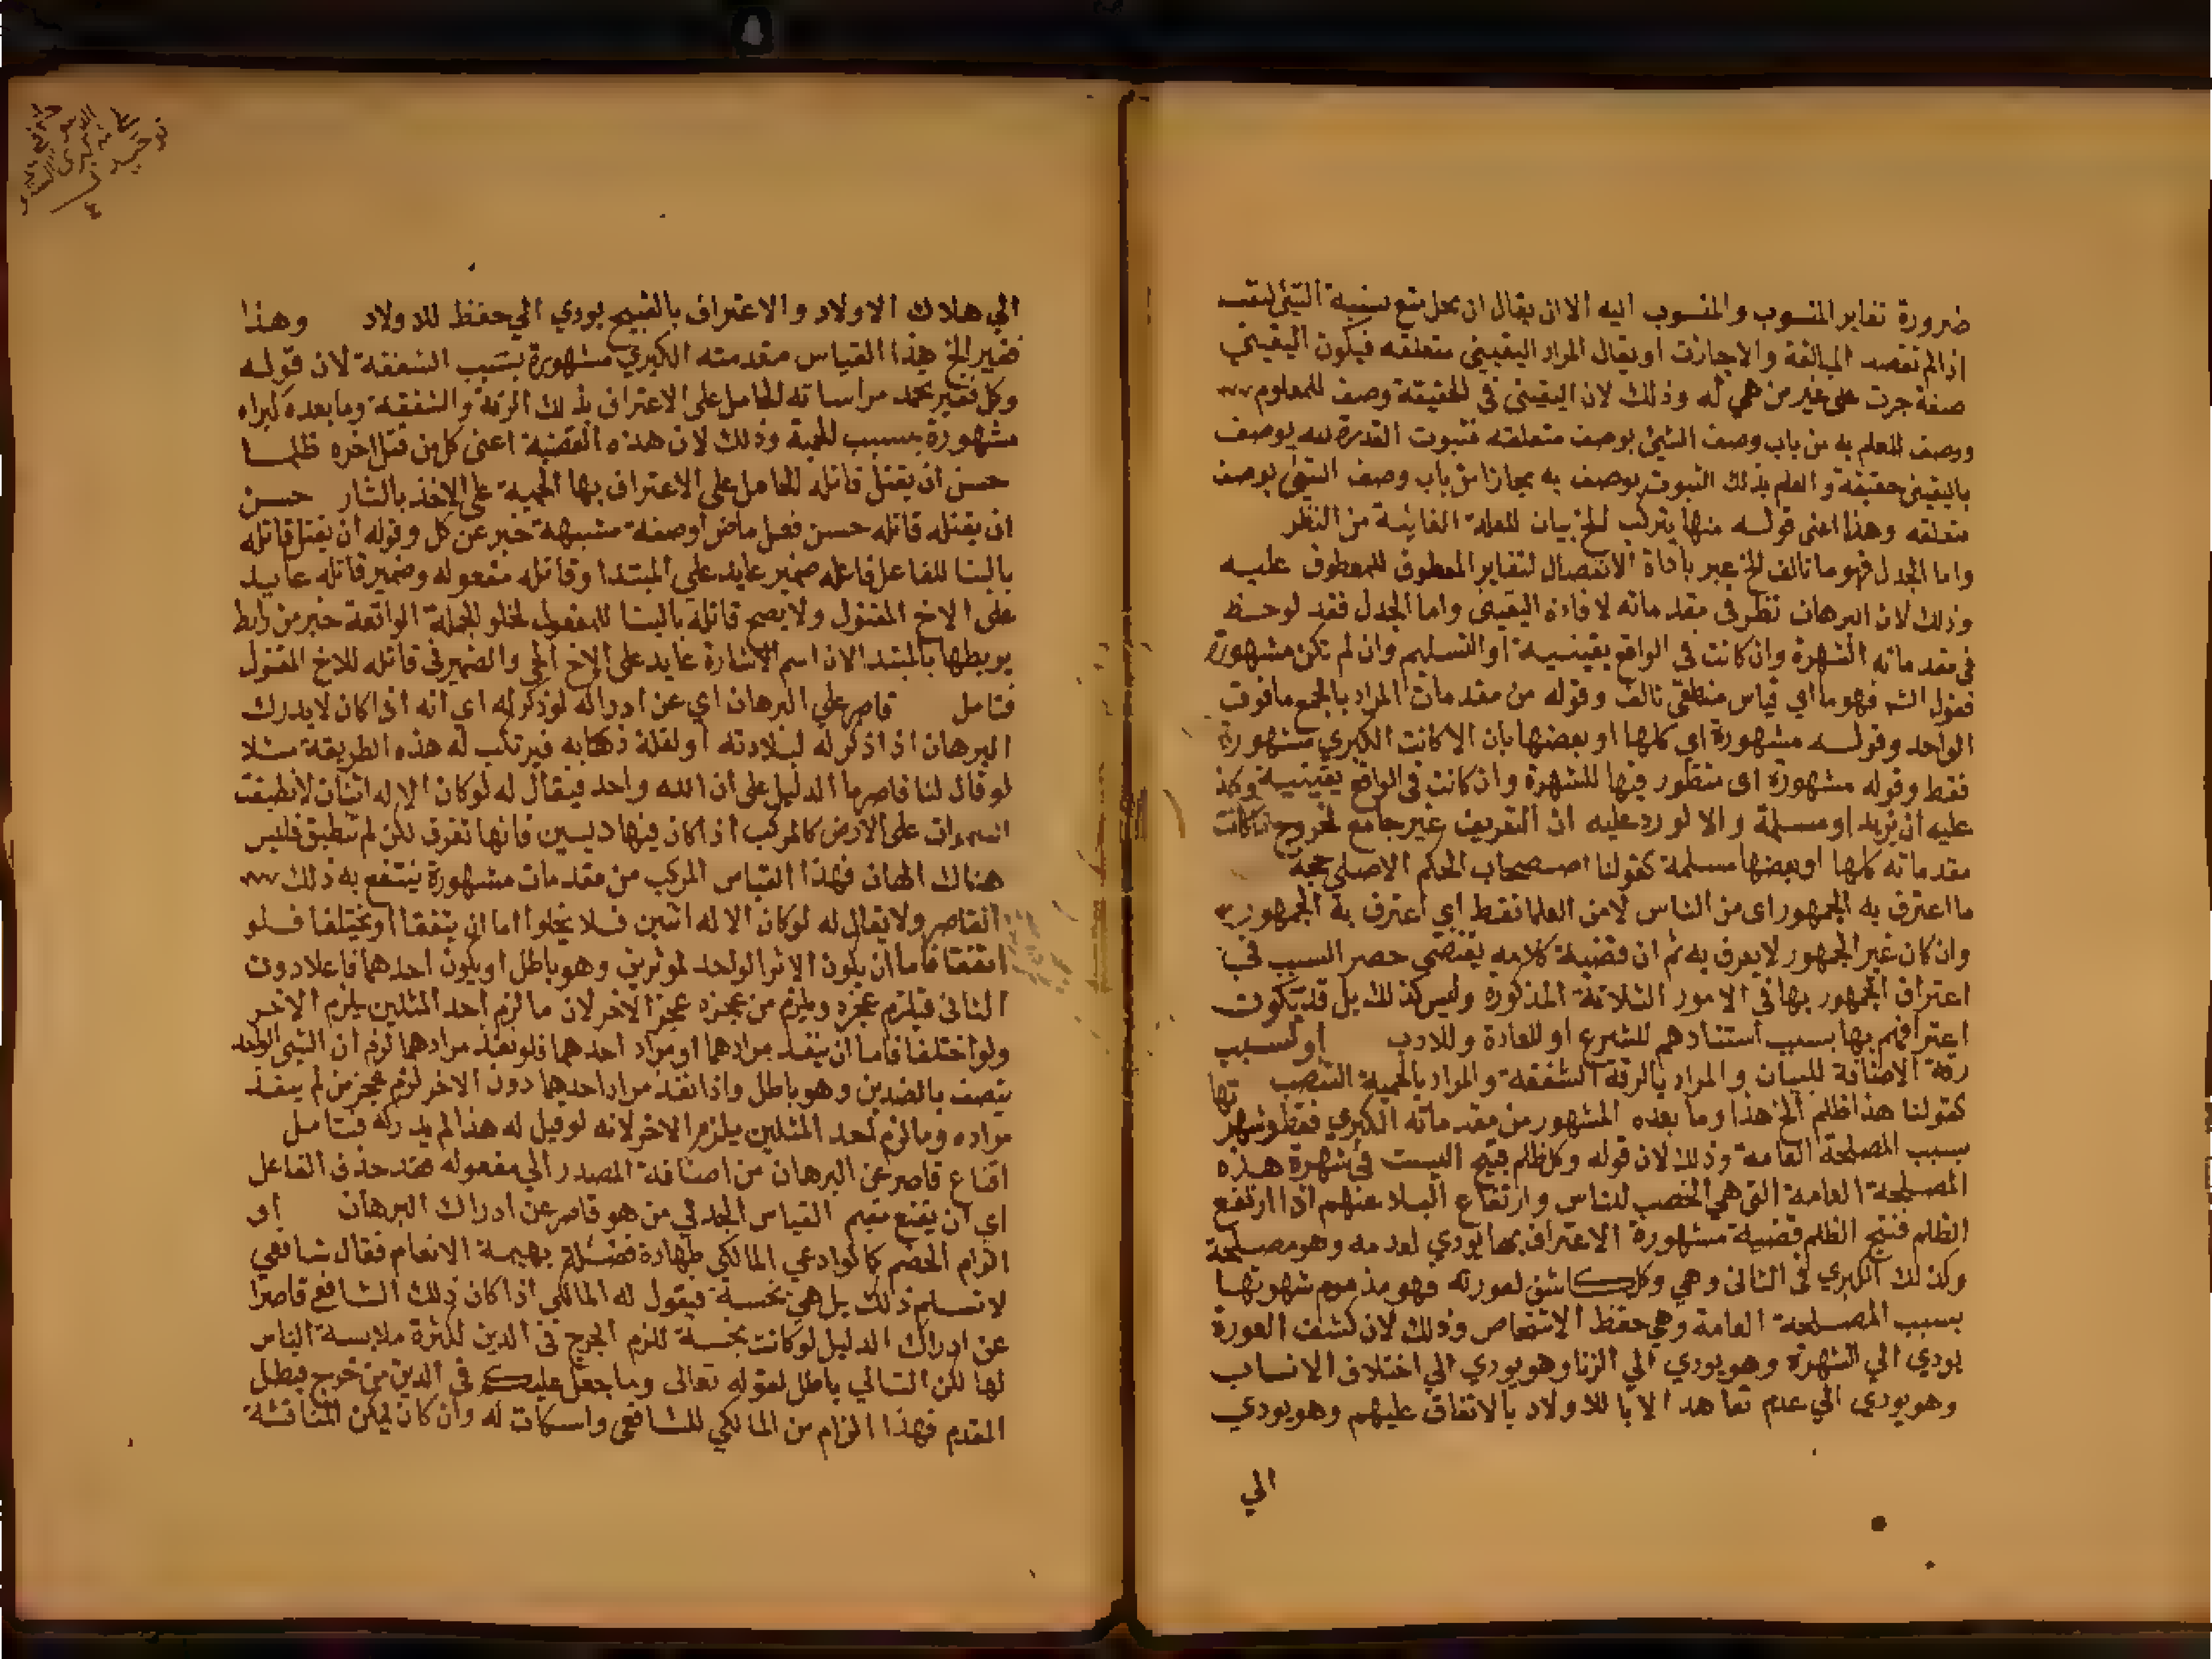 ضرورة تغاير المنسوب والمنسوب اليه الا ان يقال ان محل منع نسبة الشئ لنفسه
اذا لم تقصد المبالغة والاجازت او يقال المراد اليقيني متعلقه فيكون اليقيني
صفة جرت على غير من هي له وذلك لان اليقيني في الحقيقة وصف للمعلوم
ووصف العلم به من باب وصف الشئ بوصف متعلقه فثبوت القدرة لله يوصف
باليقيني حقيقة والعلم بذلك الثبوت يوصف به مجازا من باب وصف الشئ بوصف
متعلقه وهذا اعني قوله منها يتركب الخ بيان للعلة الغائية من النظر
واما الجدل فهو ما تالف الخ عبر باداة الانفصال لتغاير المعطوف للمعطوف عليه
وذلك لان البرهان نظر في مقدماته لافادة اليقين واما الجدل فقد لوحظ
في مقدماته الشهرة وان كانت في الواقع يقينية او التسليم وان لم تكن مشهورة
فقول الشم فهو ما اي قياس منطقي تالف وقوله من مقدمات المراد بالجمع ما فوق
الواحد وقوله مشهورة اي كلها او بعضها بان الا كانت الكبري مشهورة
فقط وقوله مشهورة اي منظور فيها للشهرة وان كانت في الواقع يقينية وكذ
عليه ان يزيد او مسلمة والا لورد عليه ان التعريف غير جامع لخروج ما كانت
مقدماته كلها او بعضها مسلمة كقولنا استصحاب الحكم الاصلي حجة
ما اعترف به الجمهور اي من الناس لا من العلما فقط اي اعترف به الجمهور
وان كان غير الجمهور لا يعرف به ثم ان قضية كلامه يقتضي حصر السبب في
اعتراف الجمهور بها في الامور الثلاثة المذكورة وليس كذلك بل قد يكون
اعترافهم بها بسبب استنادهم للشرع او للعادة وللادب او لسبب
رقة الاضافة للبيان والمراد بالرقة الشفقة والمراد بالحمية التعصب
كقولنا هذا ظلم الخ هذا وما بعده المشهور من مقدماته الكبري فقط وشهرتها
بسبب المصلحة العامة وذلك لان قوله وكل ظلم قبيح السبب في شهرة هذه
المصلحة العامة التي هي الخصب للناس وارتفاع البلا عنهم اذا ارتفع
الظلم فقبح الظلم قضية مشهورة الاعتراف بها يودي لعدمه وهو مصلحة
وكذلك الكبري في الثاني وهي وكل كاشف لعورته فهو مذموم شهرتها
بسبب المصلحة العامة وهي حفظ الاشخاص وذلك لان كشف العورة
يودي الي الشهوة وهو يودي الي الزنا وهو يودي الي اختلاف الانساب
وهو يودي الي عدم تعاهد الابا للاولاد بالانفاق عليهم وهو يودي
الي
الي هلاك الاولاد والاعتراف بالقبيح يودي الي حفظ للاولاد وهذا
فقير الخ هذا القياس مقدمته الكبري مشهورة بسبب الشفقة لان قوله
وكل فقير تحمد مراساته الحامل على الاعتراف بذلك الرقة والشفقة وما بعده كبراه
مشهورة بسبب الحمية وذلك لان هذه القضية اعني كل من قتل اخره ظلما
حسن ان يقتل قاتله الحامل على الاعتراف بها الحمية على الاخذ بالثار حسن
ان يقتله قاتله حسن فعل ماض او صفة مشبهة خبر عن كل وقوله ان يقتل قاتله
بالبنا للفاعل فاعله ضمير عايد على المبتدا وقاتله مفعوله وضمير قاتله عايد
على الاخ المقتول ولا يصح قاتله بالبنا للمفعول لخلو الجملة الواقعة خبر من رابط
يربطها بالمبتدا لان اسم الاشارة عايد على الاخ الحي والضمير في قاتله للاخ المقتول
فتامل قاصر على البرهان اي عن ادراكه لو ذكر له اي انه اذا كان لا يدرك
البرهان اذا ذكر له لبلادته او لقلة ذكايه فيرتكب له هذه الطريقة مثلا
لو قال لنا قاصر ما الدليل على ان الله واحد فيقال له لو كان الاله اثنان لانطبقت
السموات على الارض كالمركب اذا كان فيها رئيسين فانها تغرق لكن لم تنطبق فليس
هناك الهان فهذا القياس المركب من مقدمات مشهورة ينتفع به ذلك
القاصر ولا يقال له لو كان الاله اثنين فلا يخلوا اما ان يتفقا او يختلفا فلو
اتفقا فاما ان يكون الاثر الواحد لموثرين وهو باطل او يكون احدهما فاعلا دون
الثاني فيلزم عجزه ويلزم من عجزه عجز الاخر لان ما لزم احد المثلين يلزم الاخر
ولو اختلفا فاما ان ينفذ مرادهما او مراد احدهما فلو نفذ مرادهما لزم ان الشئ الواحد
يتصف بالضدين وهو باطل واذا نفذ مراد احدهما دون الاخر لزم عجز من لم ينفذ
مراده وما لزم احد المثلين يلزم الاخر لانه لو قيل له هذا لم يدركه فتامل
اقناع قاصر عن البرهان من اضافة المصدر الي مفعوله بعد حذف الفاعل
اي ان يقنع مقيم القياس الجدلي من هو قاصر عن ادراك البرهان او
الزام الخصم كما لو ادعي المالكي طهارة فضلة بهيمة الانعام فقال شافعي
لا نسلم ذلك بل هي نجسة فيقول له المالكي اذا كان ذلك الشافع قاصرا
عن ادراك الدليل لو كانت نجسة للزم الحرج في الدين لكثرة ملابسة الناس
لها لكن التالي باطل لقوله تعالى وما جعل عليكم في الدين من حرج فبطل
المقدم فهذا الزام من المالكي للشافعي واسكات له وان كان يمكن المناقشة